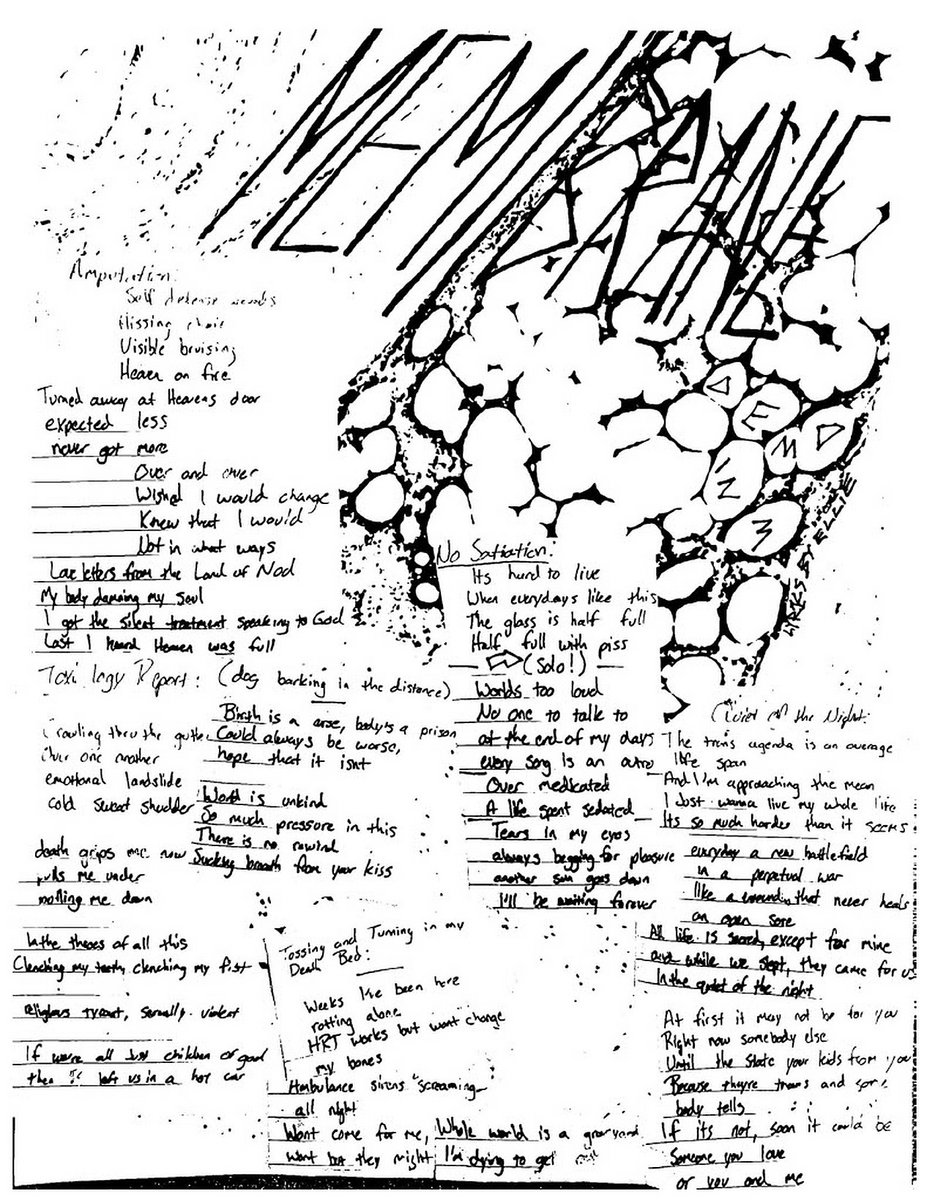 MEMBRANE
DEMO
'23
LYRICS BY ELLIE
Amputation:
Self defense wounds
Hissing choir
Visible bruising
Heaven on fire
Turned away at Heavens door
expected less
never got more
Over and over
Wished I would change
Knew that I would
Not in what ways
Love letters from the Land of Nod
My body damning my soul
I got the silent treatment speaking to God
Last I heard Heaven was full
No Satiation:
Its hard to live
When everydays like this
The glass is half full
Half full with piss
(Solo!)
Worlds too loud
No one to talk to
at the end of my days
every song Is an outro
Over medicated
A life spent sedated
Tears in my eyes
always begging for pleasure
another sun goes down
I'll be waiting forever
Toxilogy Report: (dog barking in the distance)
Crawling thru the gutter
Over one another
emotional landslide
cold sweat shudder
death grips me now
pulls me under
me down
In the throes of all this
Clenching my teeth, clenching my fist
religious tyrant, sexually violent
If were all just children of god
then he left us in a hot car
Birth is a curse, body's a prison
Could always be worse,
hope that it isnt
World is unkind
So much pressure in this
There is no rewind
Sucking breath from your kiss
Tossing and Turning in my
Death Bed:
Weeks I've been here
rotting alone
HRT works but wont change
my bones
Ambulance sirens screaming
all night
Wont come for me,
Wont but they might
Whole world is a graveyard
I'm dying to get
Quiet of the Night:
The trans agenda is an average
life span
And I'm approaching the mean
I Just wanna live my whole life
Its so much harder than it seems
everyday a new battlefield
in a perpetual war
like a wound that never heals
an open sore
All life is sacred, except for mine
and while we slept, they came for us
In the quiet of the night
At first it may not be for you
Right now somebody else
Until the State your kids from you
Because theyre trans and some
body tells
If its not, soon it could be
Someone you love
or you and me